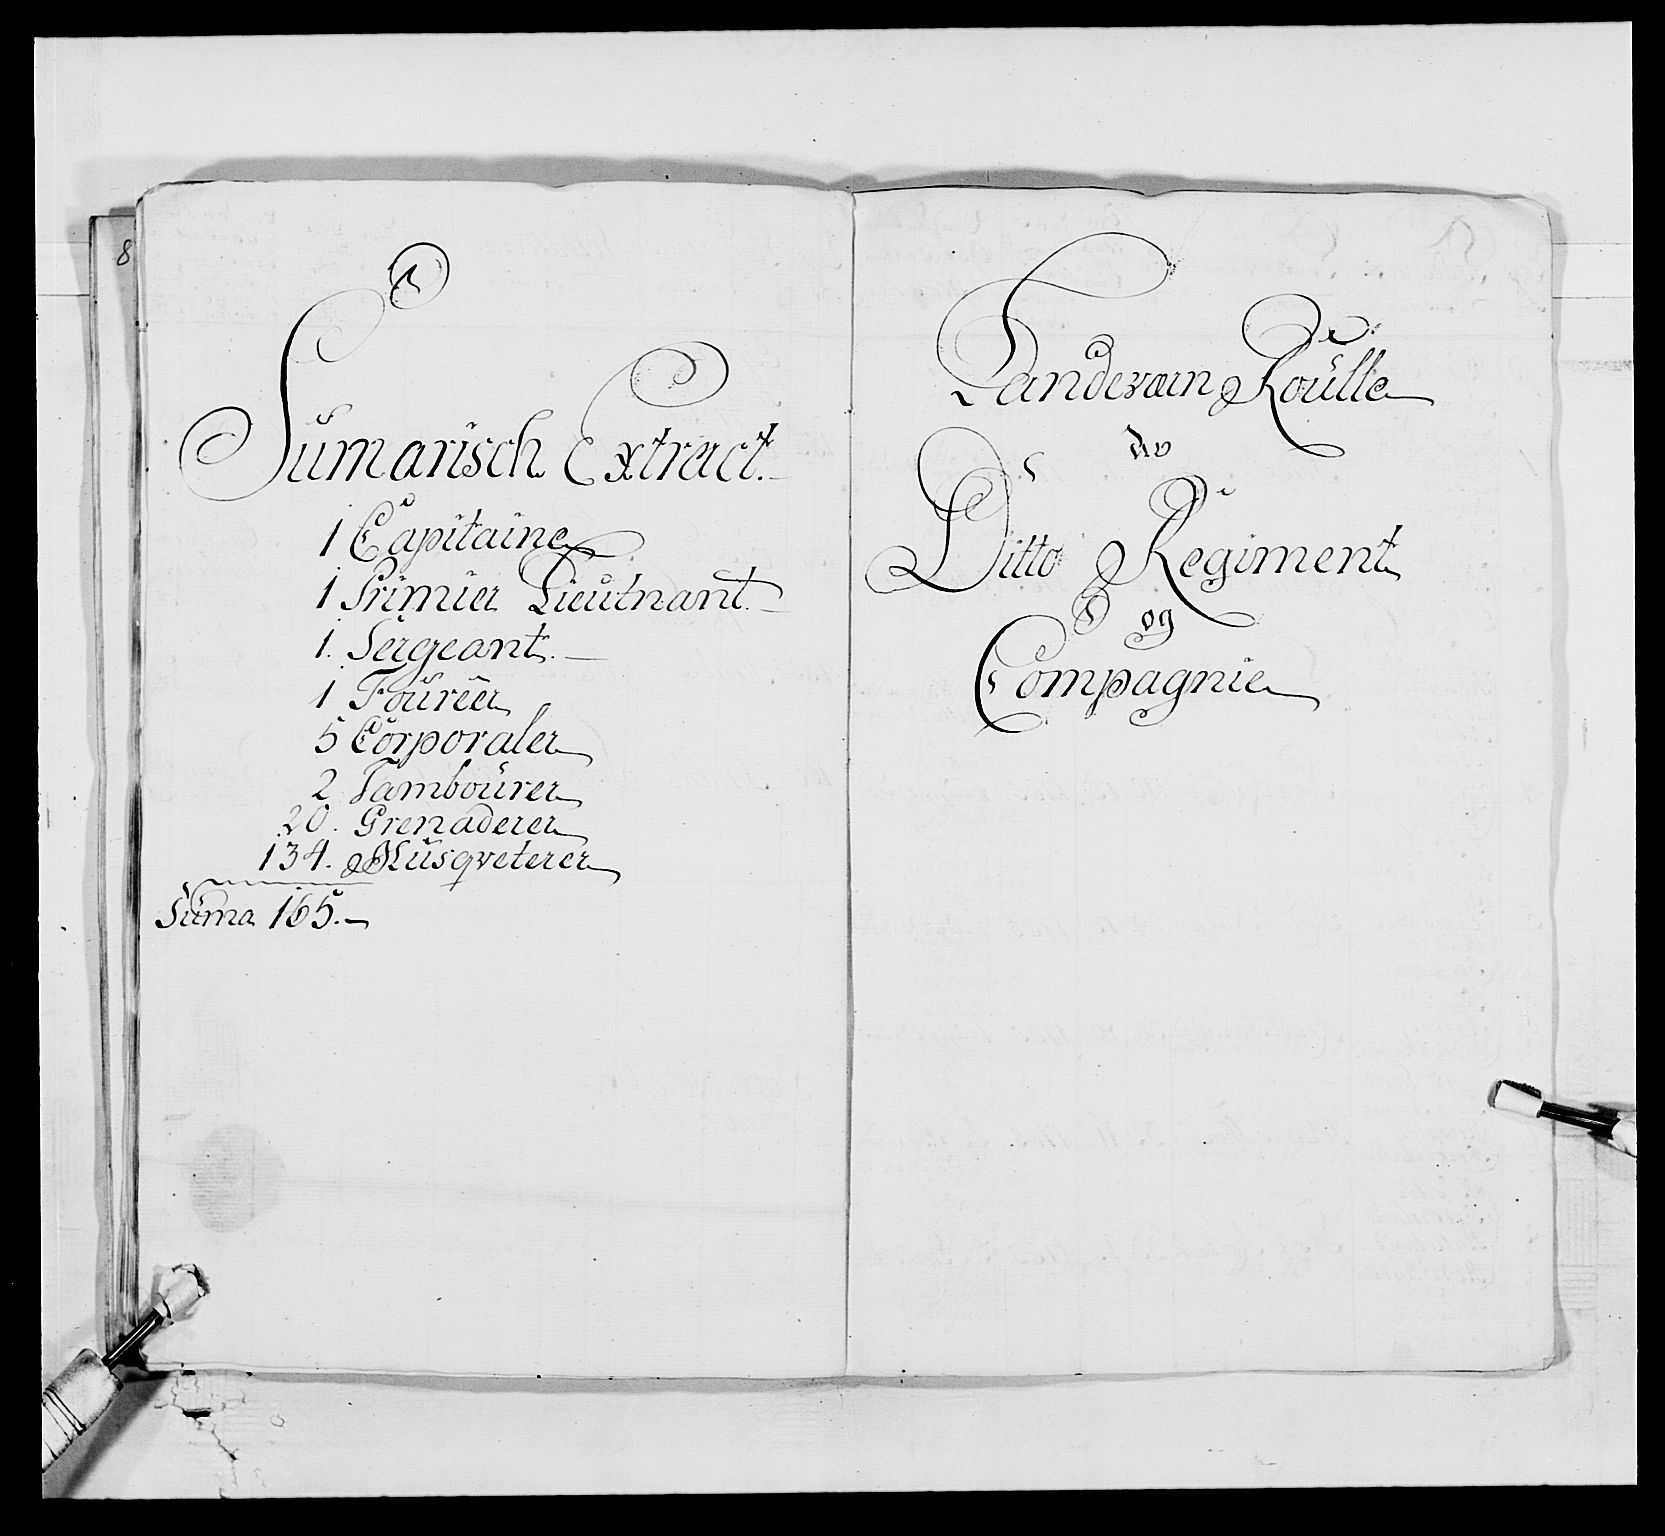 8
Sumarisch Extract.
1 Capitaine
1 Primier Lieutnant.
1. Sergeant.
1 Foureer
5 Corporaler
2 Tambourer
20. Grenaderer
134. Musqveterer
Suma 165.
Landeværn Roulle
av
Ditto Regiment
og
Compagnie